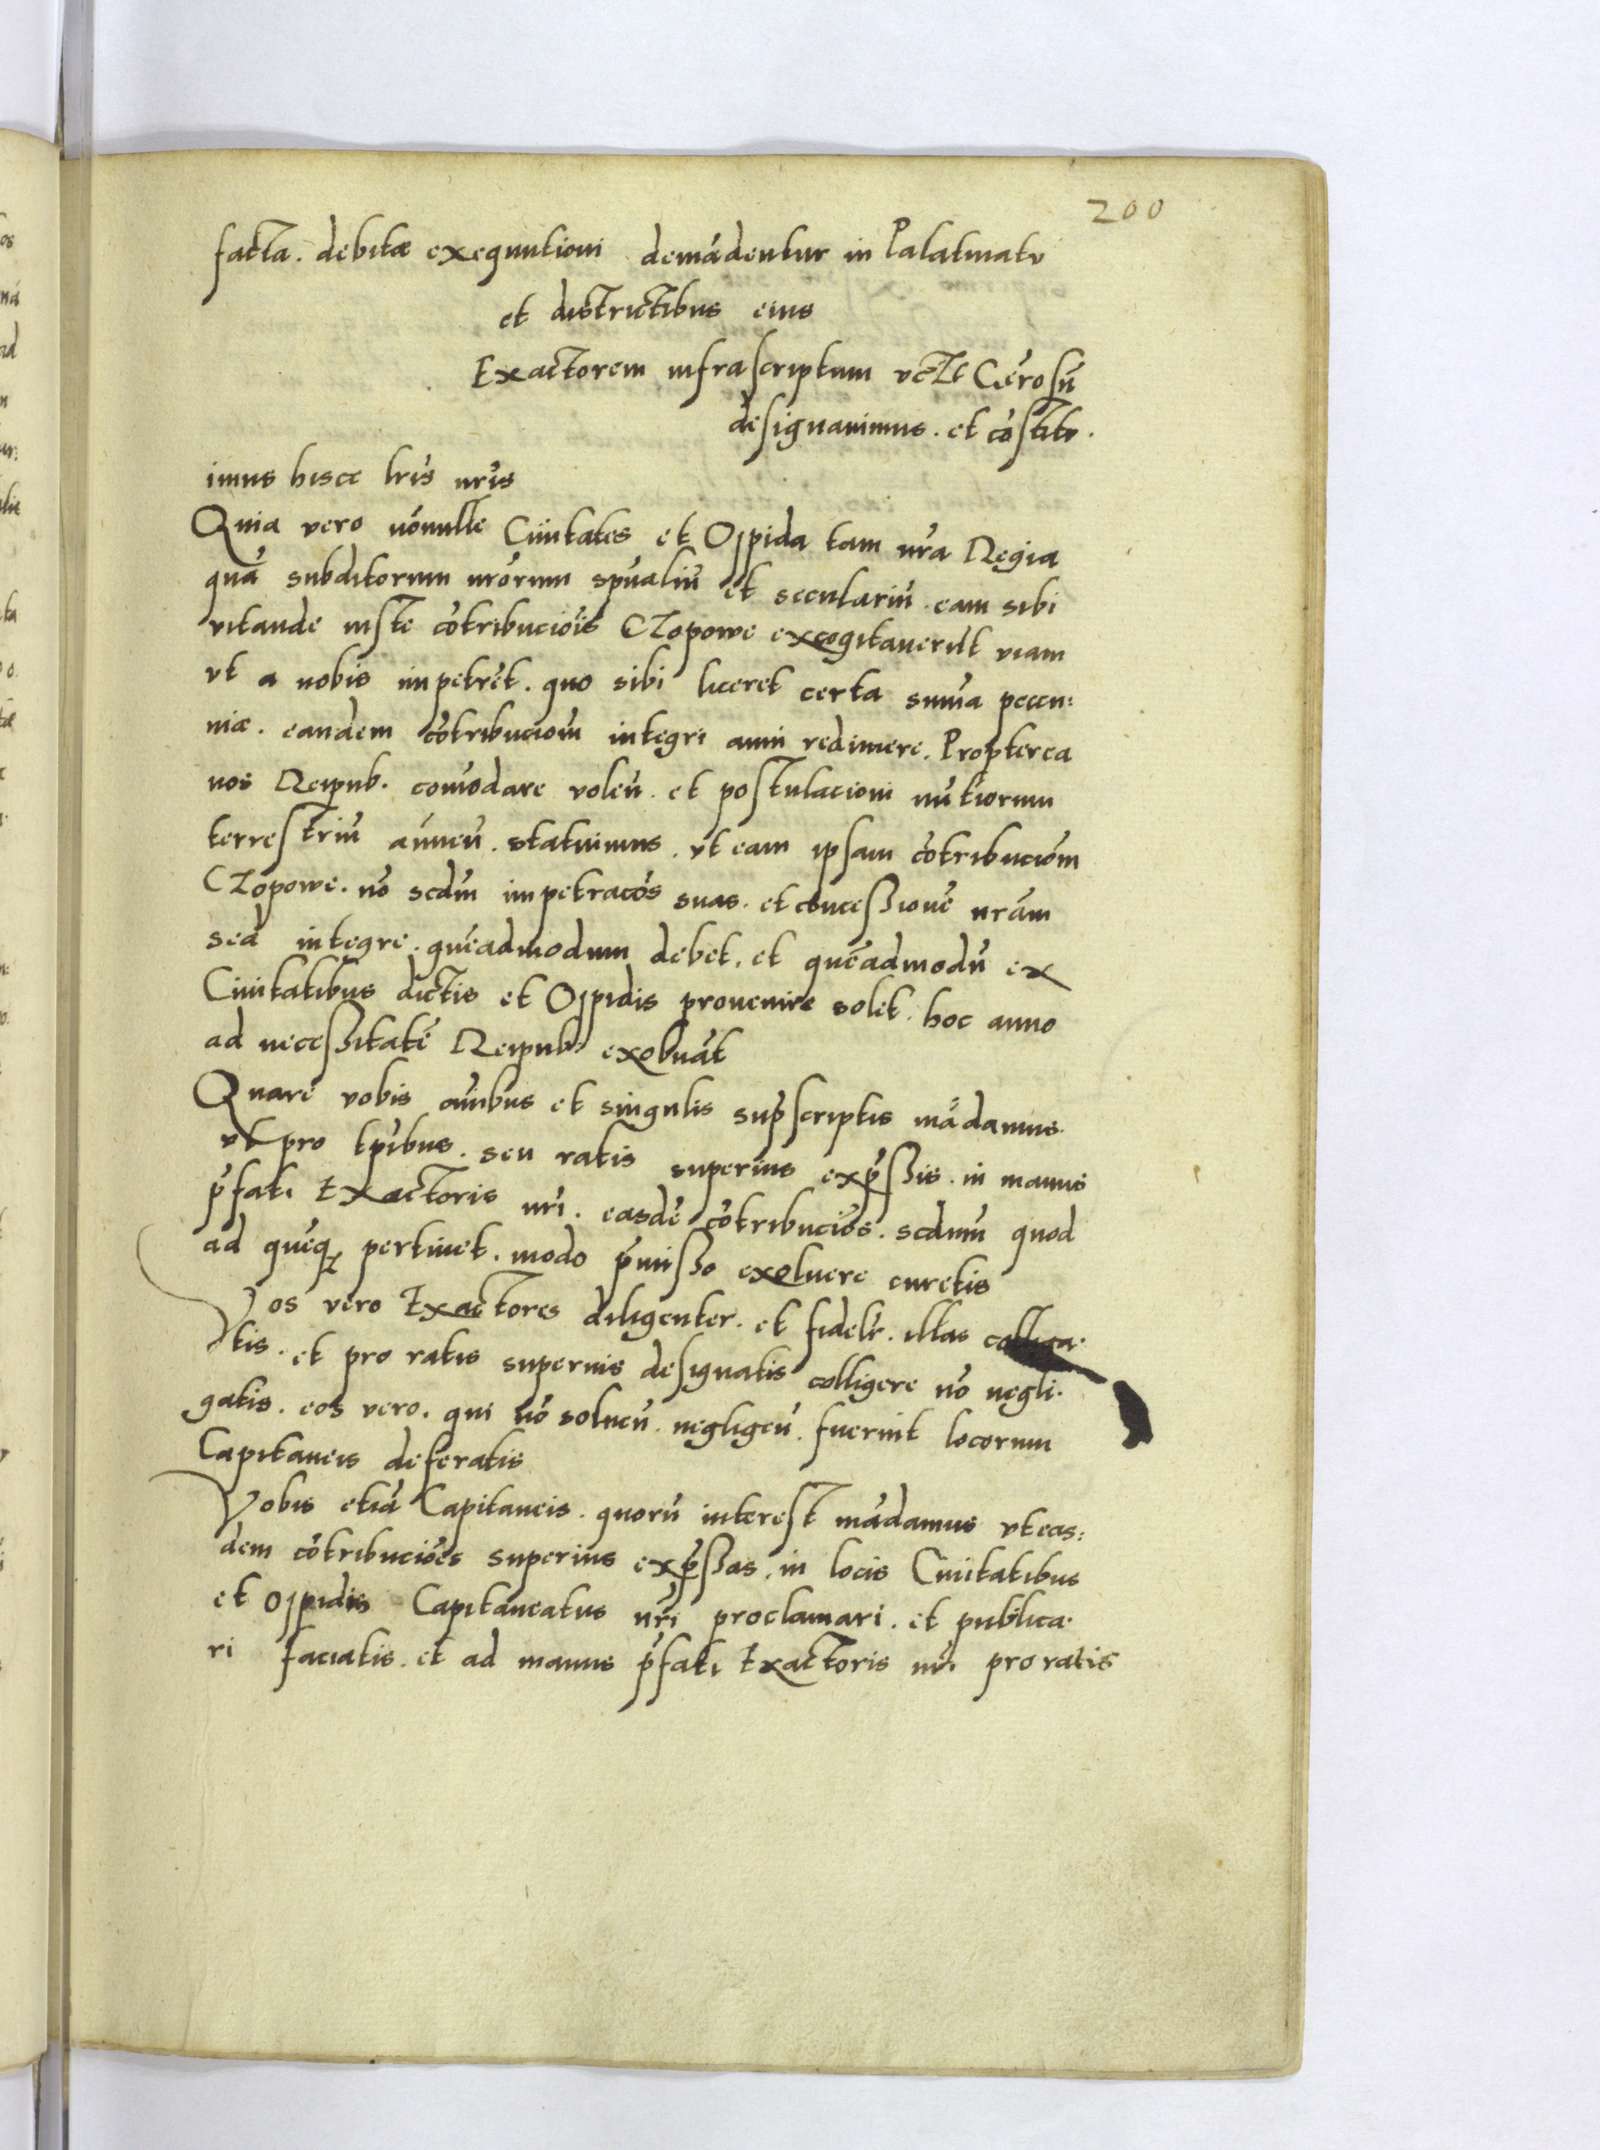 200
facta. debitæ exequutioni demādentur in Palatinatu
et districtibus eius
Exactorem infrascriptum vcꝫt Gn̄rosū
designavimus. et cōstitu.
imus hisce lr̄is nr̄is
Quia vero nōnulle Ciuitates et Oppida tam nr̄a Regia
quā subditorum nr̄orum spūaliū et seculariū. eam sibi
vitande iuste cōtribuciōis Czopowe excogitauerūt viam
vt a nobis impetrēt. quo sibi liceret certa sum̄a peccu:
niæ. eandem cōtribuciom̄ integri anni redimere. Propterea
nos Reipub. com̄odare volen̄. et postulacioni nūtiorum
terrestriū an̄uen̄. statuimus. vt eam ipsam cōtribuciōm
Czopowe. nō scdm̄ impetracōs suas. et concessionē nrām
sed integre. quēadmodum debet. et quēadmodū ex
Ciuitatibus dictis et Oppidis prouenire solet. hoc anno
ad necessitatē Reipub. exoluāt
Quare vobis om̄ibus et singulis sup̄scriptis mādamus.
vt pro tp̄ibus. seu ratis superius exp̄ssis. in manus
p̄fati Exactoris nr̄i. easdē cōtribuciōs. scdum̄ quod
ad quēqꝫ pertinet. modo p̄misso exoluere curetis
Vos vero Exactores diligenter. et fidelr̄. illas colliga.
tis. et pro ratis superius designatis colligere nō negli.
gatis. eos vero. qui nō soluen̄. negligen̄. fuerint locorum
Capitaneis deferatis
Vobis etiā Capitaneis. quorū interest mādamus vt eas:
dem cōtribuciōes superius exp̄ssas. in locis Ciuitatibus
et oppidis Capitaneatus nr̄i proclamari. et publica.
ri faciatis. et ad manus p̄fati Exactoris nr̄i pro ratis